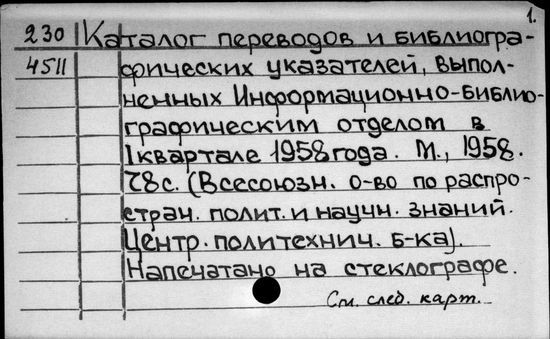 1.
230 Каталог переводов и библиогра-
4511 фических указателей, выпол-
ненных Информационно-библио-
графическим отделом в
I квартале 1958 года. М., 1958.
28 с. (Всесоюзн. о-во по распро-
стран. полит. и научн. знаний.
Центр. политехнич. б-ка).
Напечатано на стеклографе.
См. след. карт.